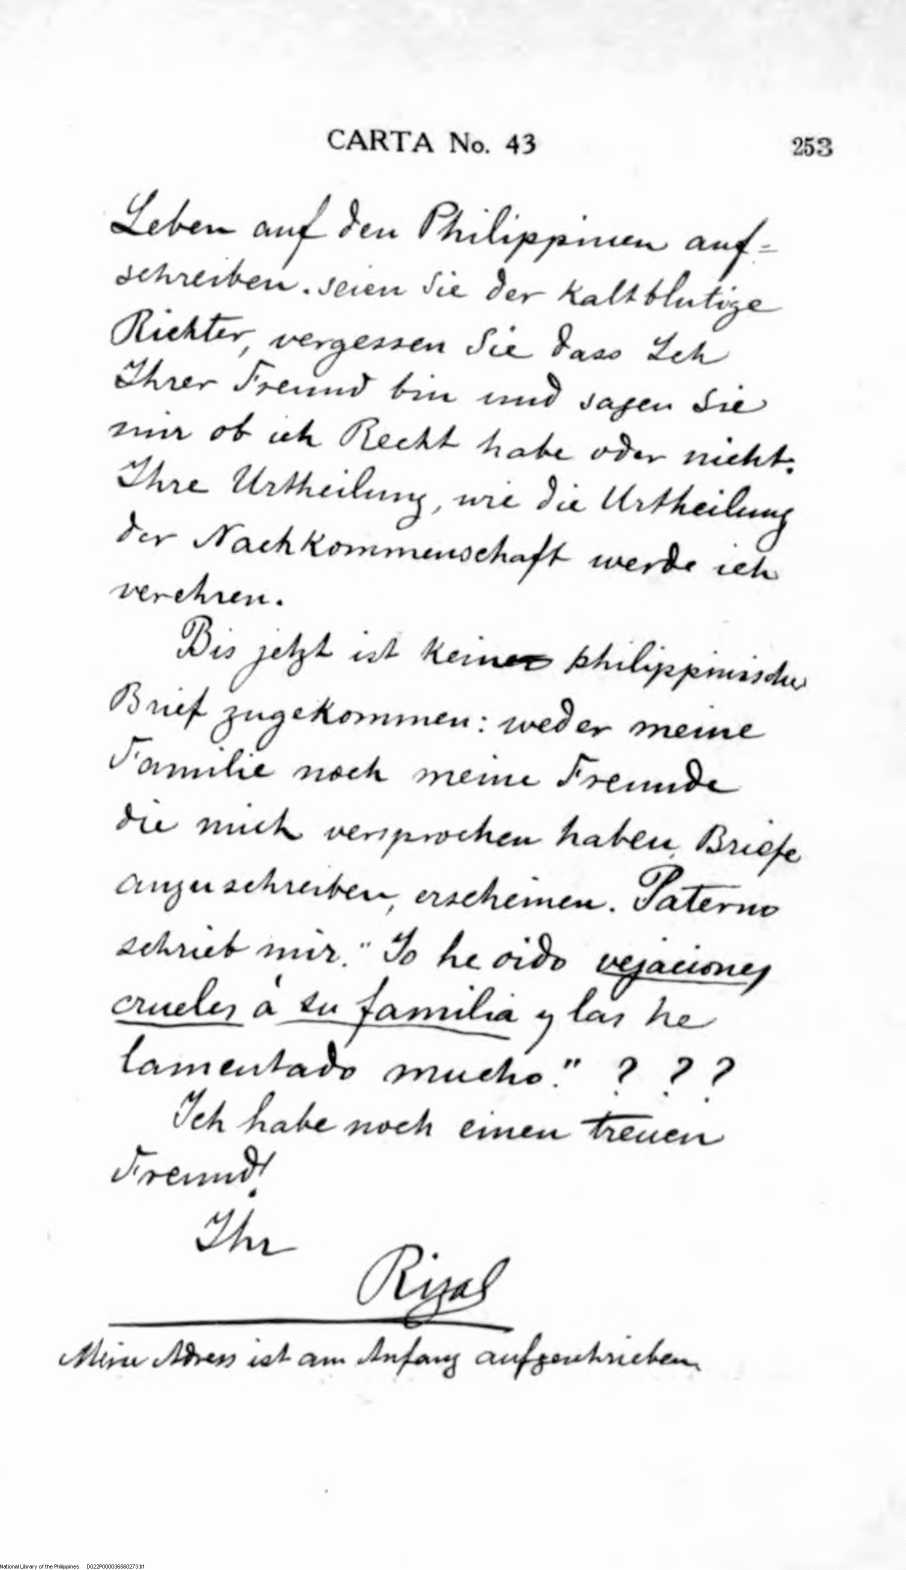 CARTA No. 43 253
Leben auf den Philippinen auf=
schreiben. seien Sie der kaltblutige
Richter, vergessen Sie dass Ich
Ihrer Freund bin und sagen Sie
mir ob ich Recht habe oder nicht.
Ihre Urtheilung, wie die Urtheilung
der Nachkommenschaft werde ich
verehren.
Bis jetzt ist kein philippinischer
Brief zugekommen: weder meine
Familie noch meine Freunde
die mich versprochen haben, Briefe
anzuschreiben, erscheinen. Paterno
schrieb mir. "Yo he oido vejaciones
crueles á su familia y las he
lamentado mucho." ? ? ?
Ich habe noch einen treuen
Freund!
Ihr
Rizal
Meine Adress ist am Anfang aufgeschrieben
National Library of the Philippines